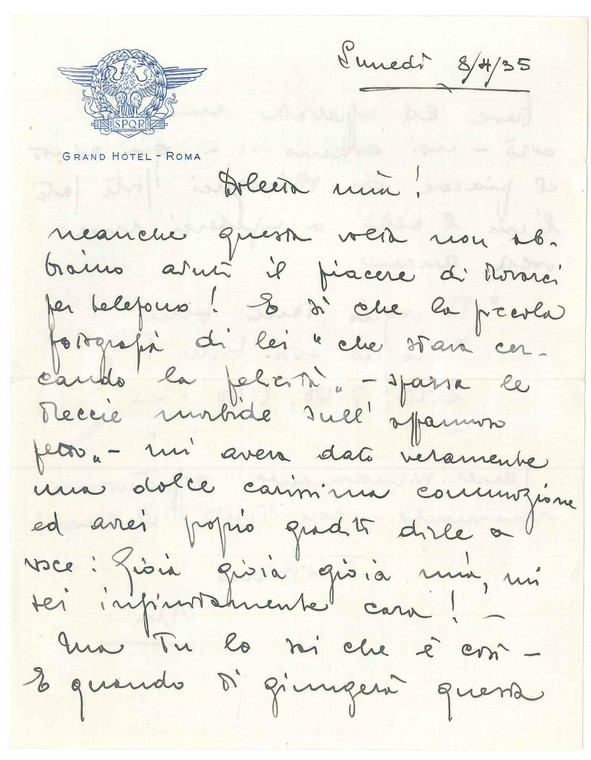 SPQR
GRAND HÔTEL - ROMA
Lunedì 8/4/35
Diletta mia!
neanche questa volta non ab-
biamo avuto il piacere di trovarci
per telefono! E sì che la piccola
fotografia di lei "che stava cer-
cando la felicità" - "sparsa le
treccie morbide sull'affannoso
petto" - mi aveva dato veramente
una dolce carissima commozione
ed avrei proprio gradito dirle a
voce: Gioia gioia gioia mia, mi
sei infinitamente cara! -
Ma Tu lo sai che è così -
E quando Ti giungerà questa